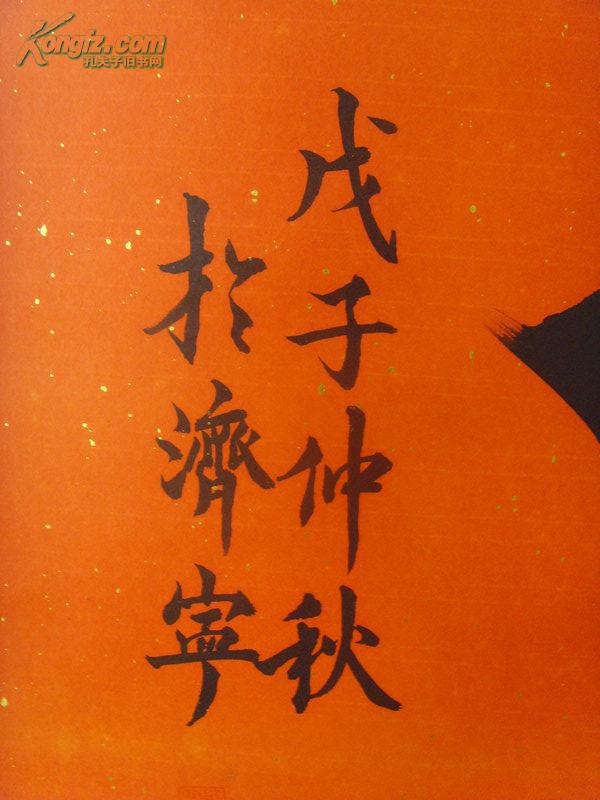 Kongfz.com
孔夫子旧书网
戊子仲秋
於濟寧